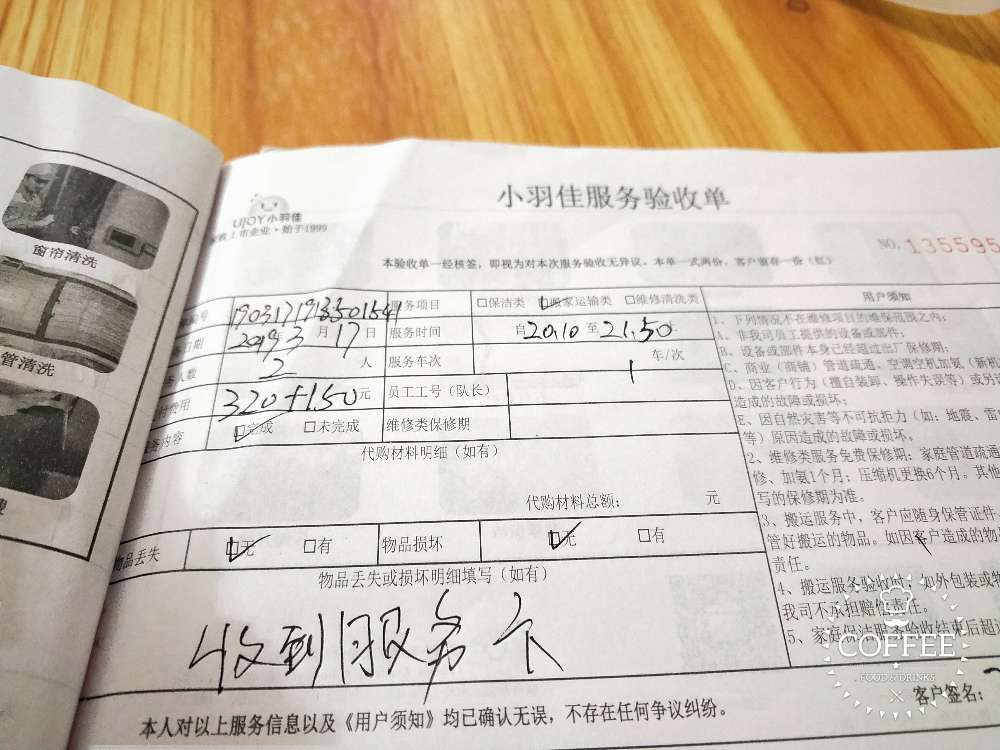 窗帘清洗
管清洗
UJOY小羽佳
小羽佳服务验收单
上市企业·始于1999
NO. 135595
本验收单一经核签，即视为对本次服务验收无异议。本单一式两份，客户留存一份（红）
服务项目 □保洁类 □搬家运输类 □维修清洗类
2019 3 月 17 日 服务时间 自 20:10 至 21:50
人数 2 人 服务车次 1 车/次
费用 320+150 元 员工工号（队长）
内容 □完成 □未完成 维修类保修期
代购材料明细（如有）
代购材料总额： 元
物品丢失 □无 □有 物品损坏 □无 □有
物品丢失或损坏明细填写（如有）
收到服务
本人对以上服务信息以及《用户须知》均已确认无误，不存在任何争议纠纷。
用户须知
1、下列情况不在维修项目的维保范围之内：
A、非我司员工提供的设备或部件；
B、设备或部件本身已经超过出厂保修期；
C、商业（商铺）管道疏通、空调空机加氨（新机
D、因客户行为（擅自装卸、操作失误等）或另
造成的故障或损坏；
E、因自然灾害等不可抗拒力（如：地震、雷
等）原因造成的故障或损坏。
2、维修类服务免费保修期：家庭管道疏通
修、加氨1个月；压缩机更换6个月。其他
写的保修期为准。
3、搬运服务中，客户应随身保管证件、
管好搬运的物品。如因客户造成的物
责任。
4、搬运服务验收时，如外包装或物
我司不承担赔偿责任。
5、家庭保洁服务验收结束后超过
客户签名：
COFFEE
FOOD & DRINKS